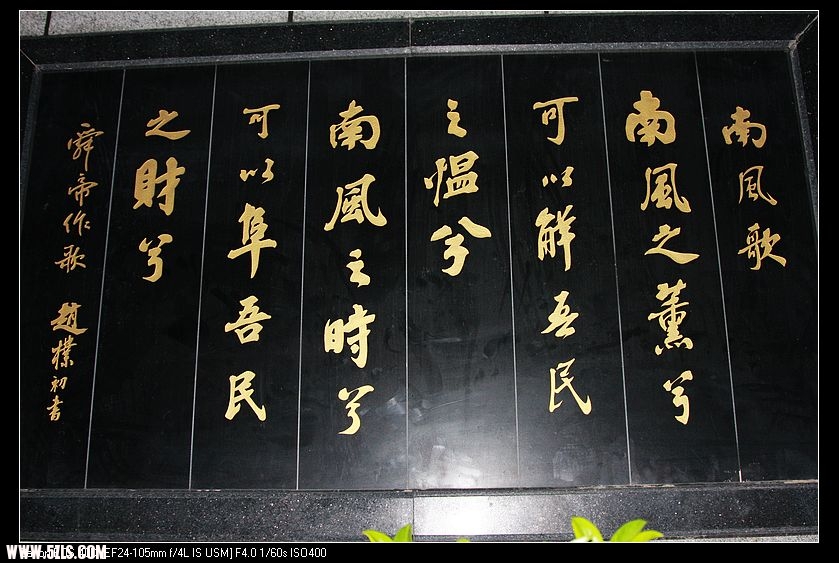 南風歌
南風之薰兮
可以解吾民
之愠兮
南風之時兮
可以阜吾民
之財兮
舜帝作歌 趙樸初書
WWW.5ZLS.COM
EF24-105mm f/4L IS USM] F4.0 1/60s ISO400